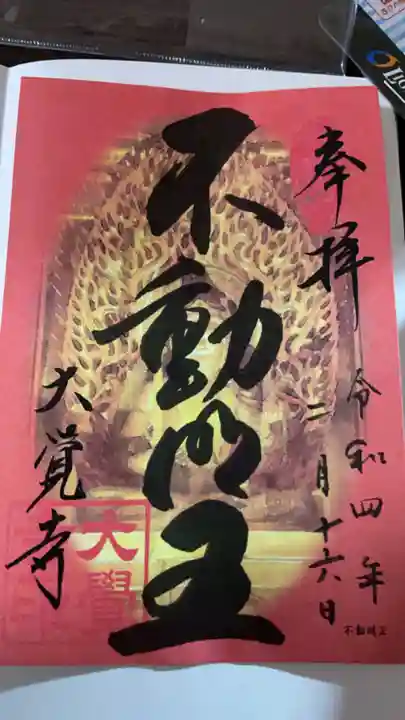 奉拝
令和四年
二月十六日
不動明王
大覚寺
大覺
不動明王